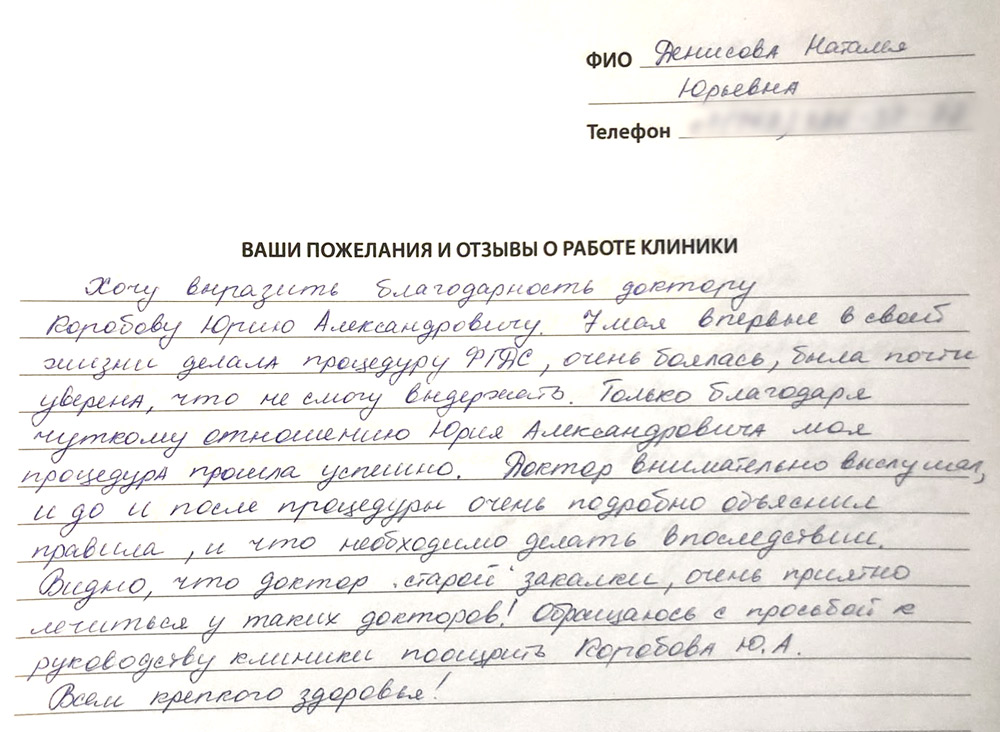 ФИО Денисова Наталья
Юрьевна
Телефон
ВАШИ ПОЖЕЛАНИЯ И ОТЗЫВЫ О РАБОТЕ КЛИНИКИ
Хочу выразить благодарность доктору
Коробову Юрию Александровичу. 7 мая впервые в своей
жизни делала процедуру ФГДС, очень боялась, была почти
уверена, что не смогу выдержать. Только благодаря
чуткому отношению Юрия Александровича моя
процедура прошла успешно. Доктор внимательно выслушал,
и до и после процедуры очень подробно объяснил
правила, и что необходимо делать впоследствии.
Видно, что доктор "старой" закалки, очень приятно
лечиться у таких докторов! Обращаюсь с просьбой к
руководству клиники поощрить Коробова Ю.А.
Всем крепкого здоровья!